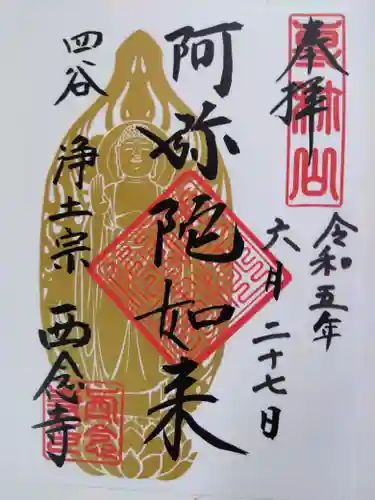 奉拝
令和五年
六月二十七日
阿弥陀如来
四谷 浄土宗 西念寺